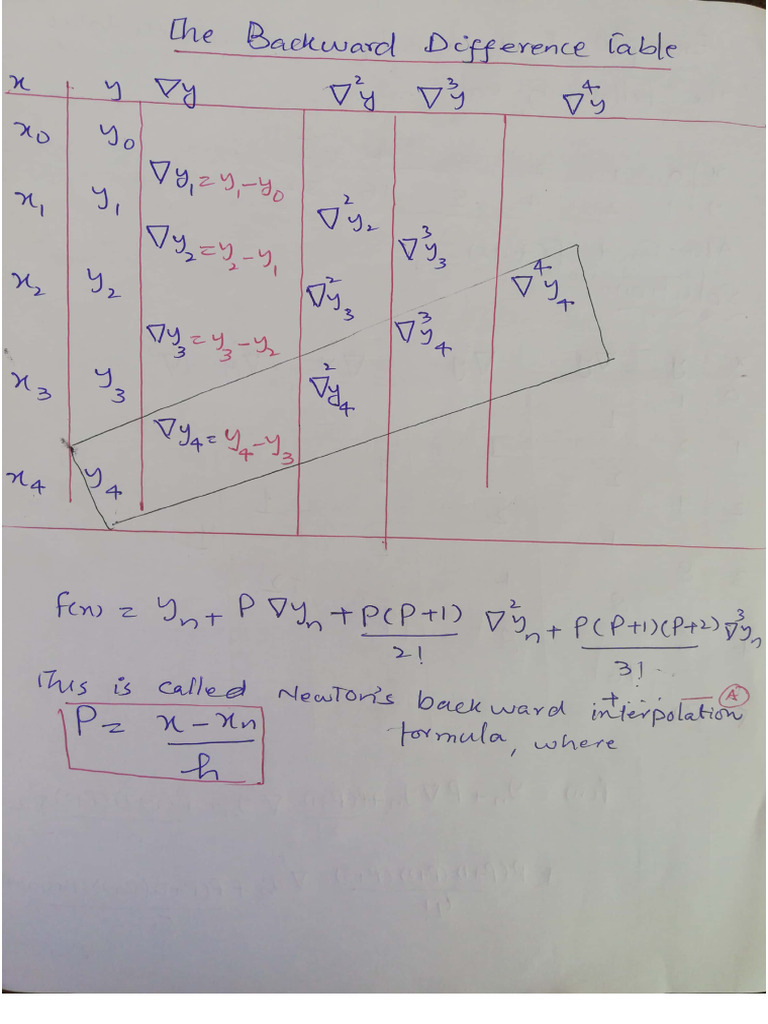 The Backward Difference Table
x y ∇y ∇²y ∇³y ∇⁴y
x₀ y₀
∇y₁ = y₁ - y₀
x₁ y₁ ∇²y₂
∇y₂ = y₂ - y₁ ∇³y₃
x₂ y₂ ∇²y₃ ∇⁴y₄
∇y₃ = y₃ - y₂ ∇³y₄
x₃ y₃ ∇²y₄
∇y₄ = y₄ - y₃
x₄ y₄
f(x) = yₙ + P ∇yₙ + P(P+1)/2! ∇²yₙ + P(P+1)(P+2)/3! ∇³yₙ
+ ..... — (A)
This is called Newton's backward interpolation
formula, where
P = (x - xₙ)/h